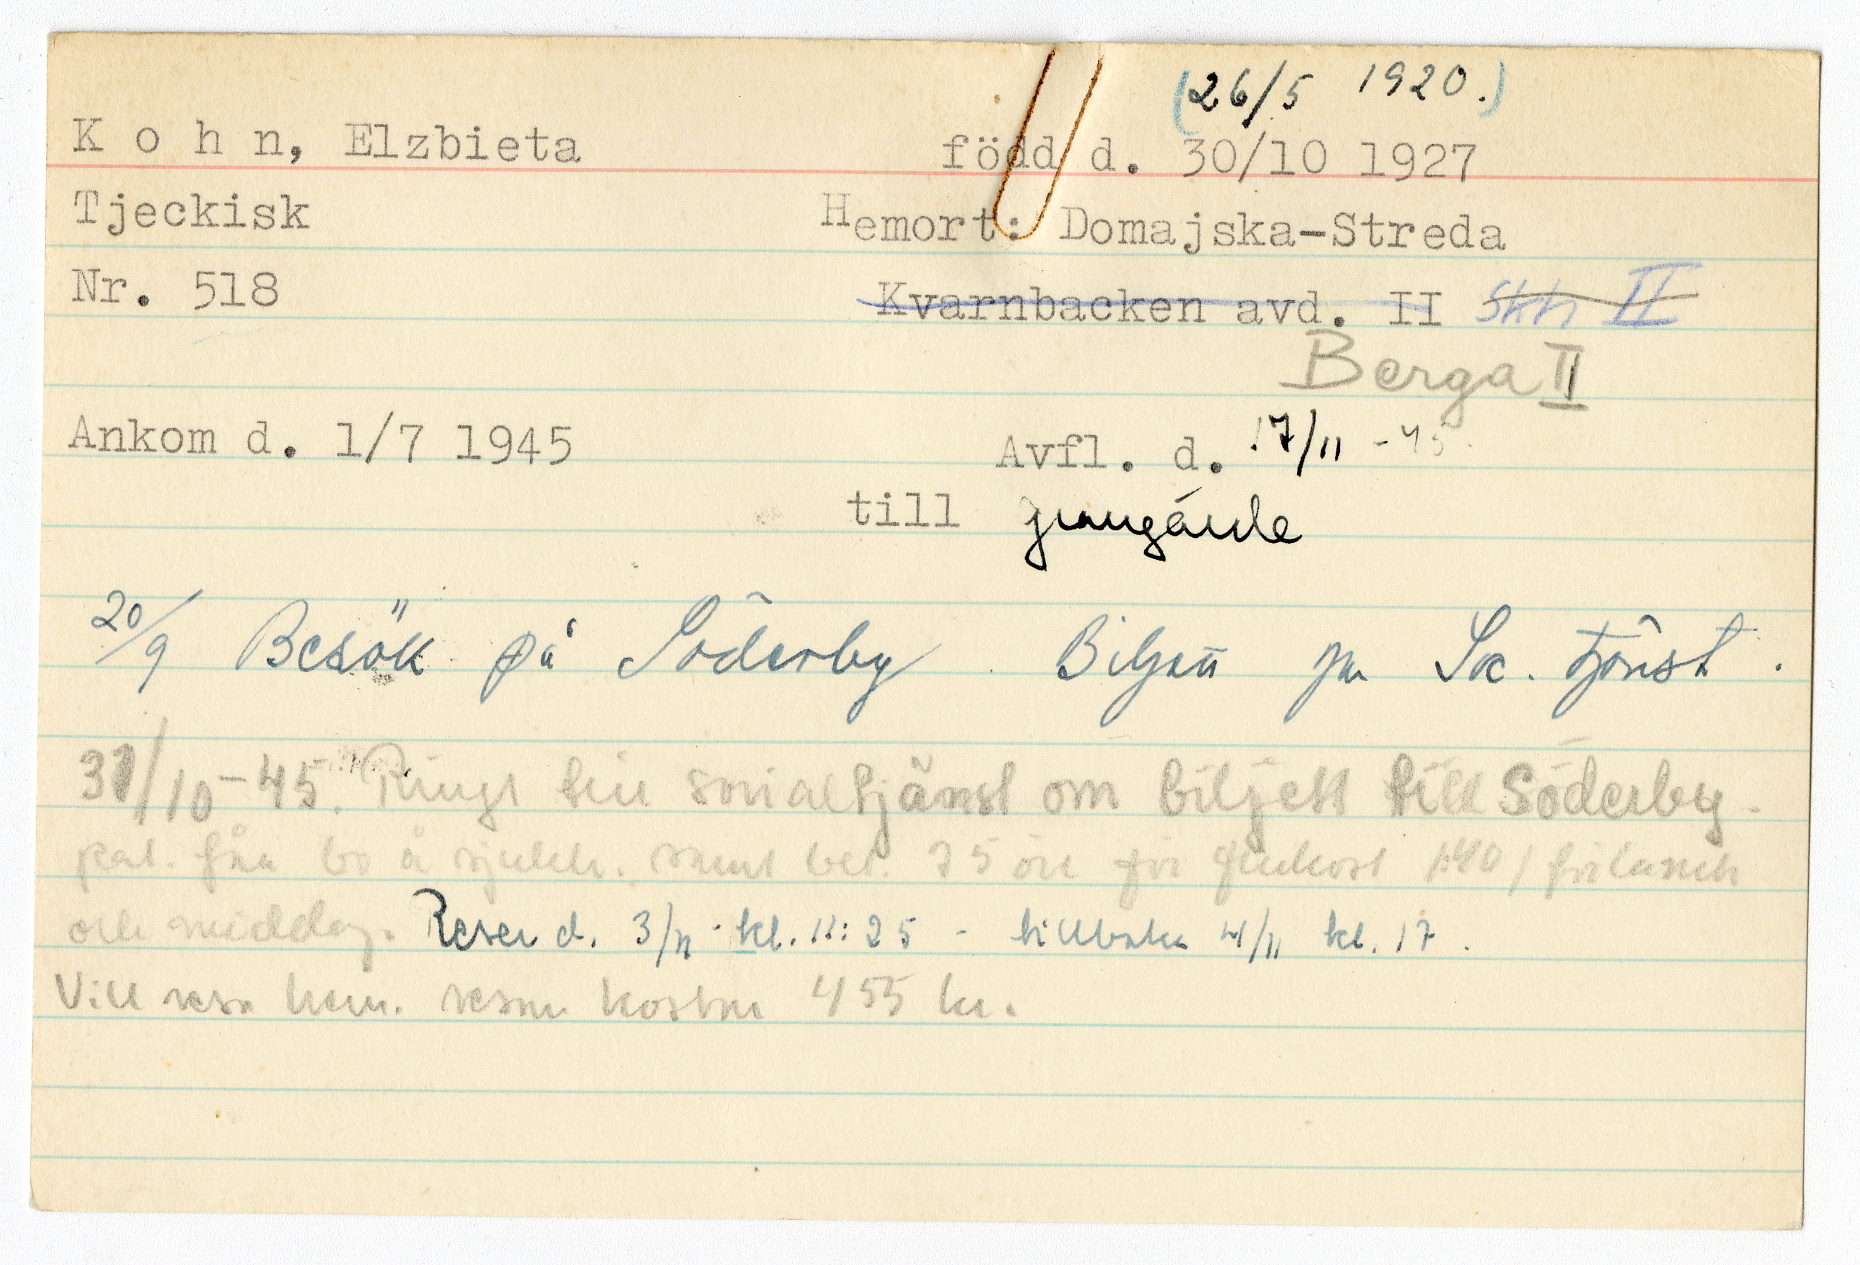 (26/5 1920.)
K o h n, Elzbieta född d. 30/10 1927
Tjeckisk Hemort: Domajska-Streda
Nr. 518 Kvarnbacken avd. II Skh II
Berga II
Ankom d. 1/7 1945 Avfl. d. 17/11 -45
till
20/9 Besök på Söderby Biljett Soc. tjänst.
31/10-45. Ringt till socialtjänst om biljett till Söderby.
pat. får bo å sjukh. samt bet. 75 öre för frukost 1:40 / för lunch
och middag. Reser d. 3/11 kl. 11:25 - tillbaka 4/11 kl. 17.
Vill resa hem. resan kostar 455 kr.